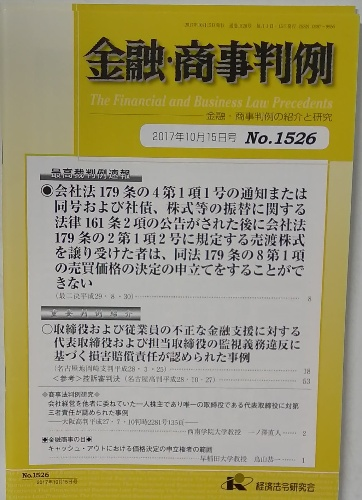 金融・商事判例
The Financial and Business Law Precedents
金融・商事判例の紹介と研究
2017年10月15日号 No.1526
最高裁判例速報
●会社法179条の4第1項1号の通知または
同号および社債、株式等の振替に関する
法律161条2項の公告がされた後に会社法
179条の2第1項2号に規定する売渡株式
を譲り受けた者は、同法179条の8第1項
の売買価格の決定の申立てをすることがで
きない
(最二決平成29・8・30) 8
○取締役および従業員の不正な金融支援に対する
代表取締役および担当取締役の監視義務違反に
基づく損害賠償責任が認められた事例
18
<参考>控訴審判決 53
◆商事法判例研究◆
会社経営を他者に委ねていた一人株主であり唯一の取締役である代表取締役に対第
三者責任が認められた事例
西南学院大学教授 2
◆金融商事の目◆
キャッシュ・アウトにおける価格決定の申立権者の範囲
早稲田大学教授 鳥山恭一 1
No.1526
2017年10月15日号
経済法令研究会